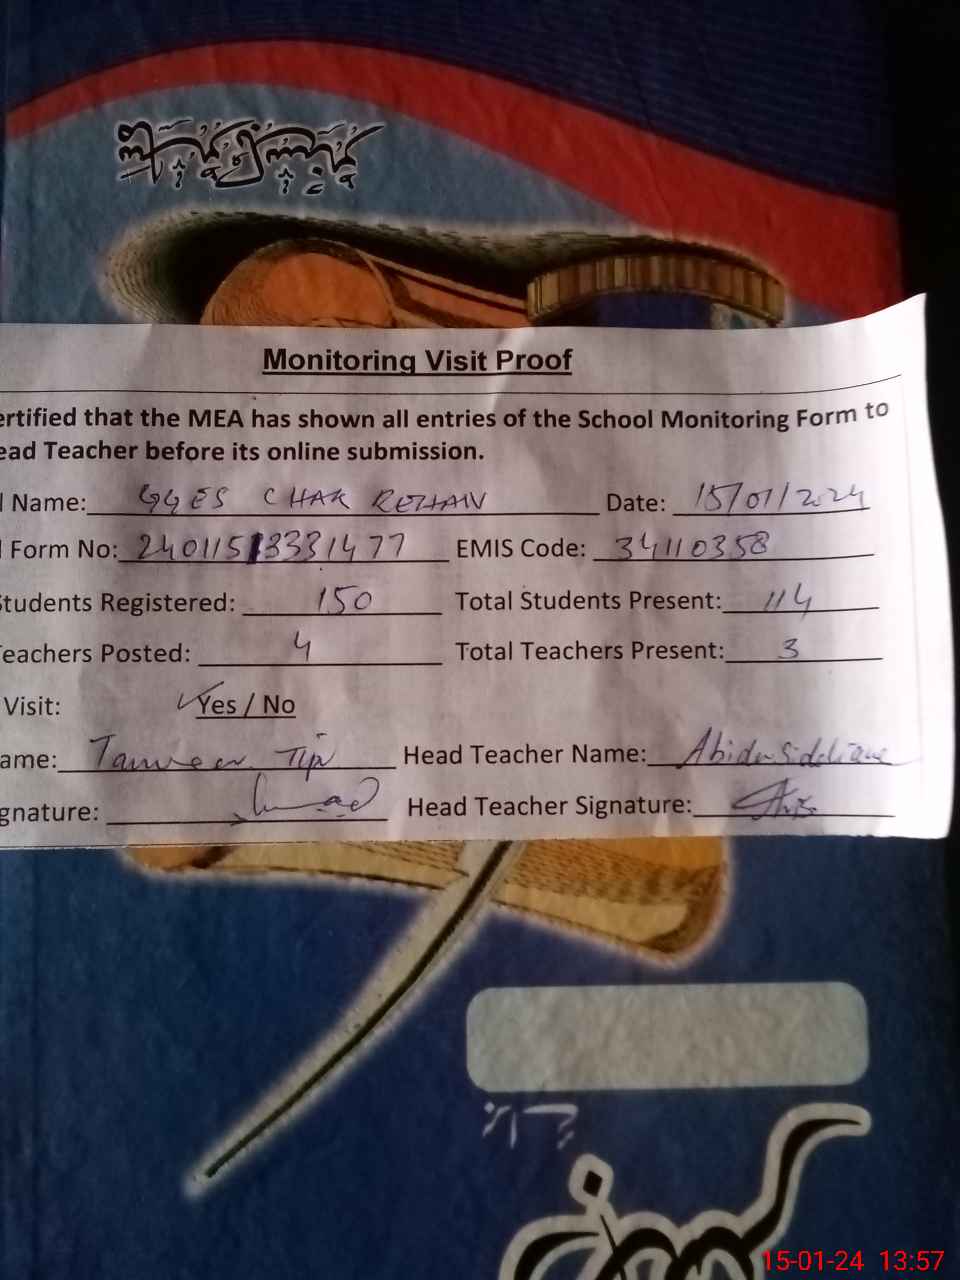 Monitoring Visit Proof
ertified that the MEA has shown all entries of the School Monitoring Form to
ead Teacher before its online submission.
l Name: GGES CHAK REHAN Date: 15/01/2024
l Form No: 240115 3331477 EMIS Code: 34110358
Students Registered: 150 Total Students Present: 114
Teachers Posted: 4 Total Teachers Present: 3
Visit: Yes / No
ame: Tanveer Head Teacher Name: Abida Siddique
gnature: Head Teacher Signature:
15-01-24 13:57